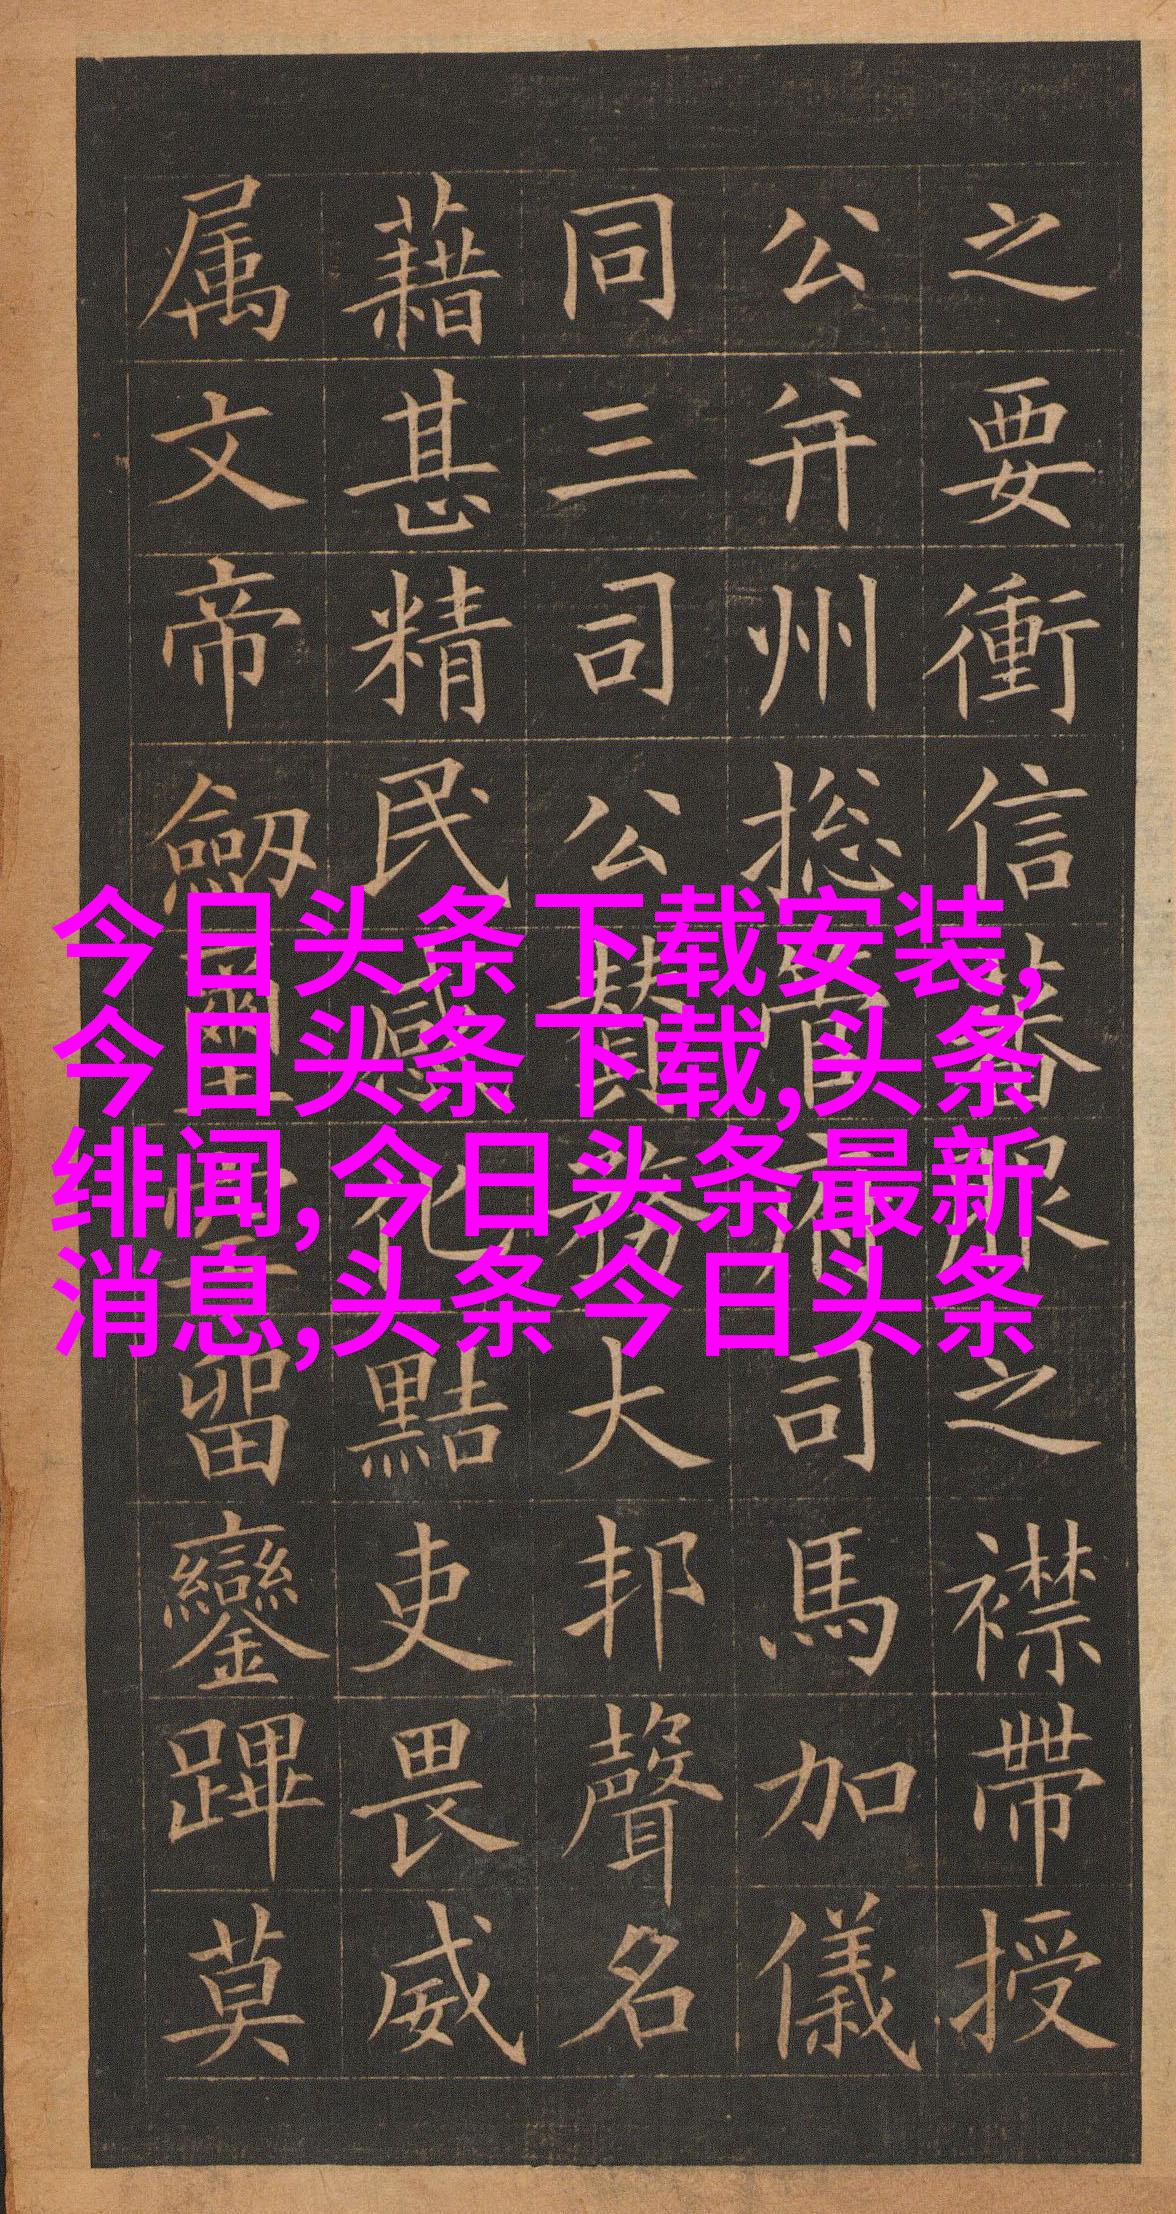 之要衝信之襟帶授
公并州捴管司馬加儀
同三司公贊務大邦聲名
藉甚精民感化黠吏畏威
属文帝劒璽留鑾蹕莫
今日头条下载安装,
今日头条下载,头条
绯闻,今日头条最新
消息,头条今日头条